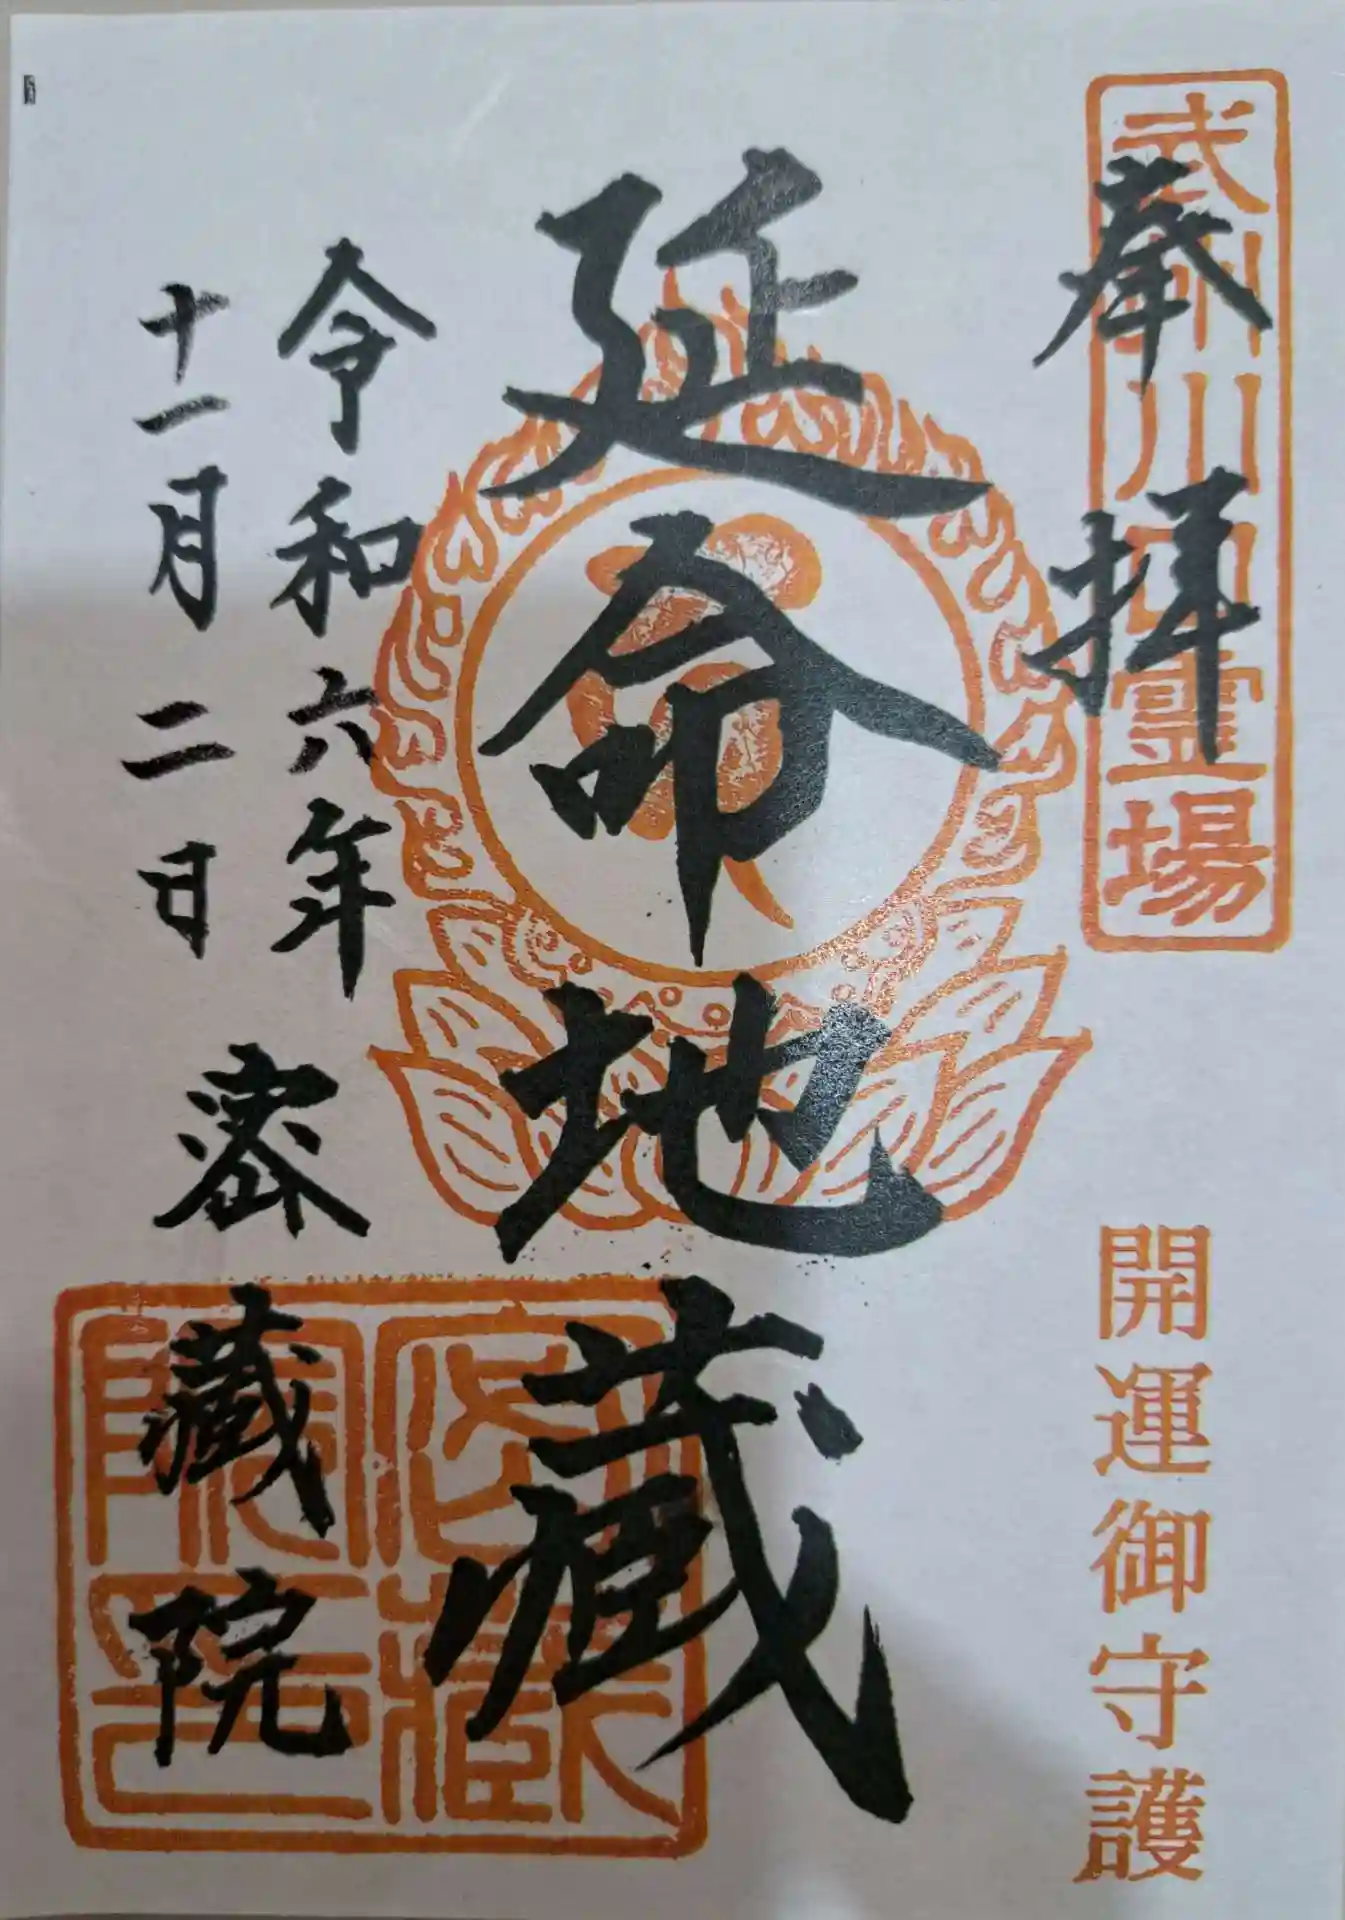 武州川口霊場
奉拝
開運御守護
延命地蔵
令和六年
十一月二日
密蔵院
密蔵院印